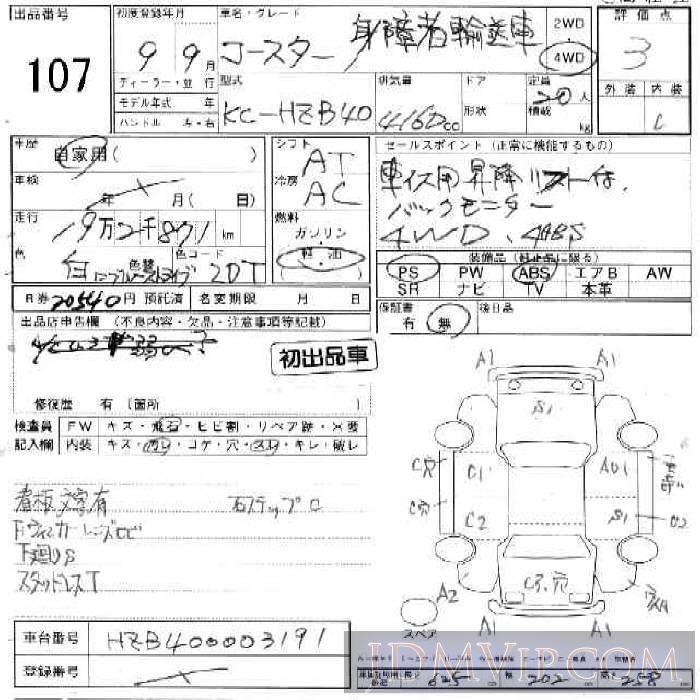 出品番号
107
初度登録年月
9年9月
ディーラー・並行
モデル年式 年
ハンドル 左・右
車名・グレード
コースター 身障者輸送車
2WD
4WD
評価点
3
外装 内装
C
型式
KC-HZB40
排気量
4160cc
ドア
形状
定員
20人
積載
kg
車歴
自家用( )
車検
年 月( 日)
走行
19万2千871km
色
白
色替
色コード
2DT
シフト
AT
冷房
AC
燃料
ガソリン
軽油
セールスポイント(正常に機能するもの)
車イス用昇降リフト付
バックモニター
4WD. ABS
PS PW ABS エアB AW
SR ナビ TV 本革
R券 20540円 預託済 名変期限 月 日
保証書
有 無
後日品
出品店申告欄 (不良内容・欠品・注意事項等記載)
初出品車
修復歴 有(箇所
検査員 FW キズ・飛石・ヒビ割・リペア跡・X要
記入欄 内装 キズ・コゲ・穴・キレ・破レ
看板文字有
右ステップC
下廻りS
スタッドレスT
A1 A1
S1
C穴 C1 AU1
C穴 C2 S1
C3.穴
A2
スペア A1 A1
車台番号 HZB400003191
登録番号
長さ 625 cm 幅 202 cm 高さ 258 cm
JDMVIP.COM